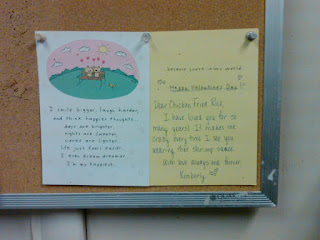 I smile bigger, laugh harder,
and think happier thoughts...
days are brighter,
nights are sweeter,
cares are lighter,
life just feels easier.
I even dream dreamier.
I'm my happiest.
because you're in my world
Happy Valentine's Day!
Dear Chicken Fried Rice,
I have loved you for
so many years! It makes me
crazy every time I see you
wearing that shrimp sauce.
With love always and forever,
Kimberly